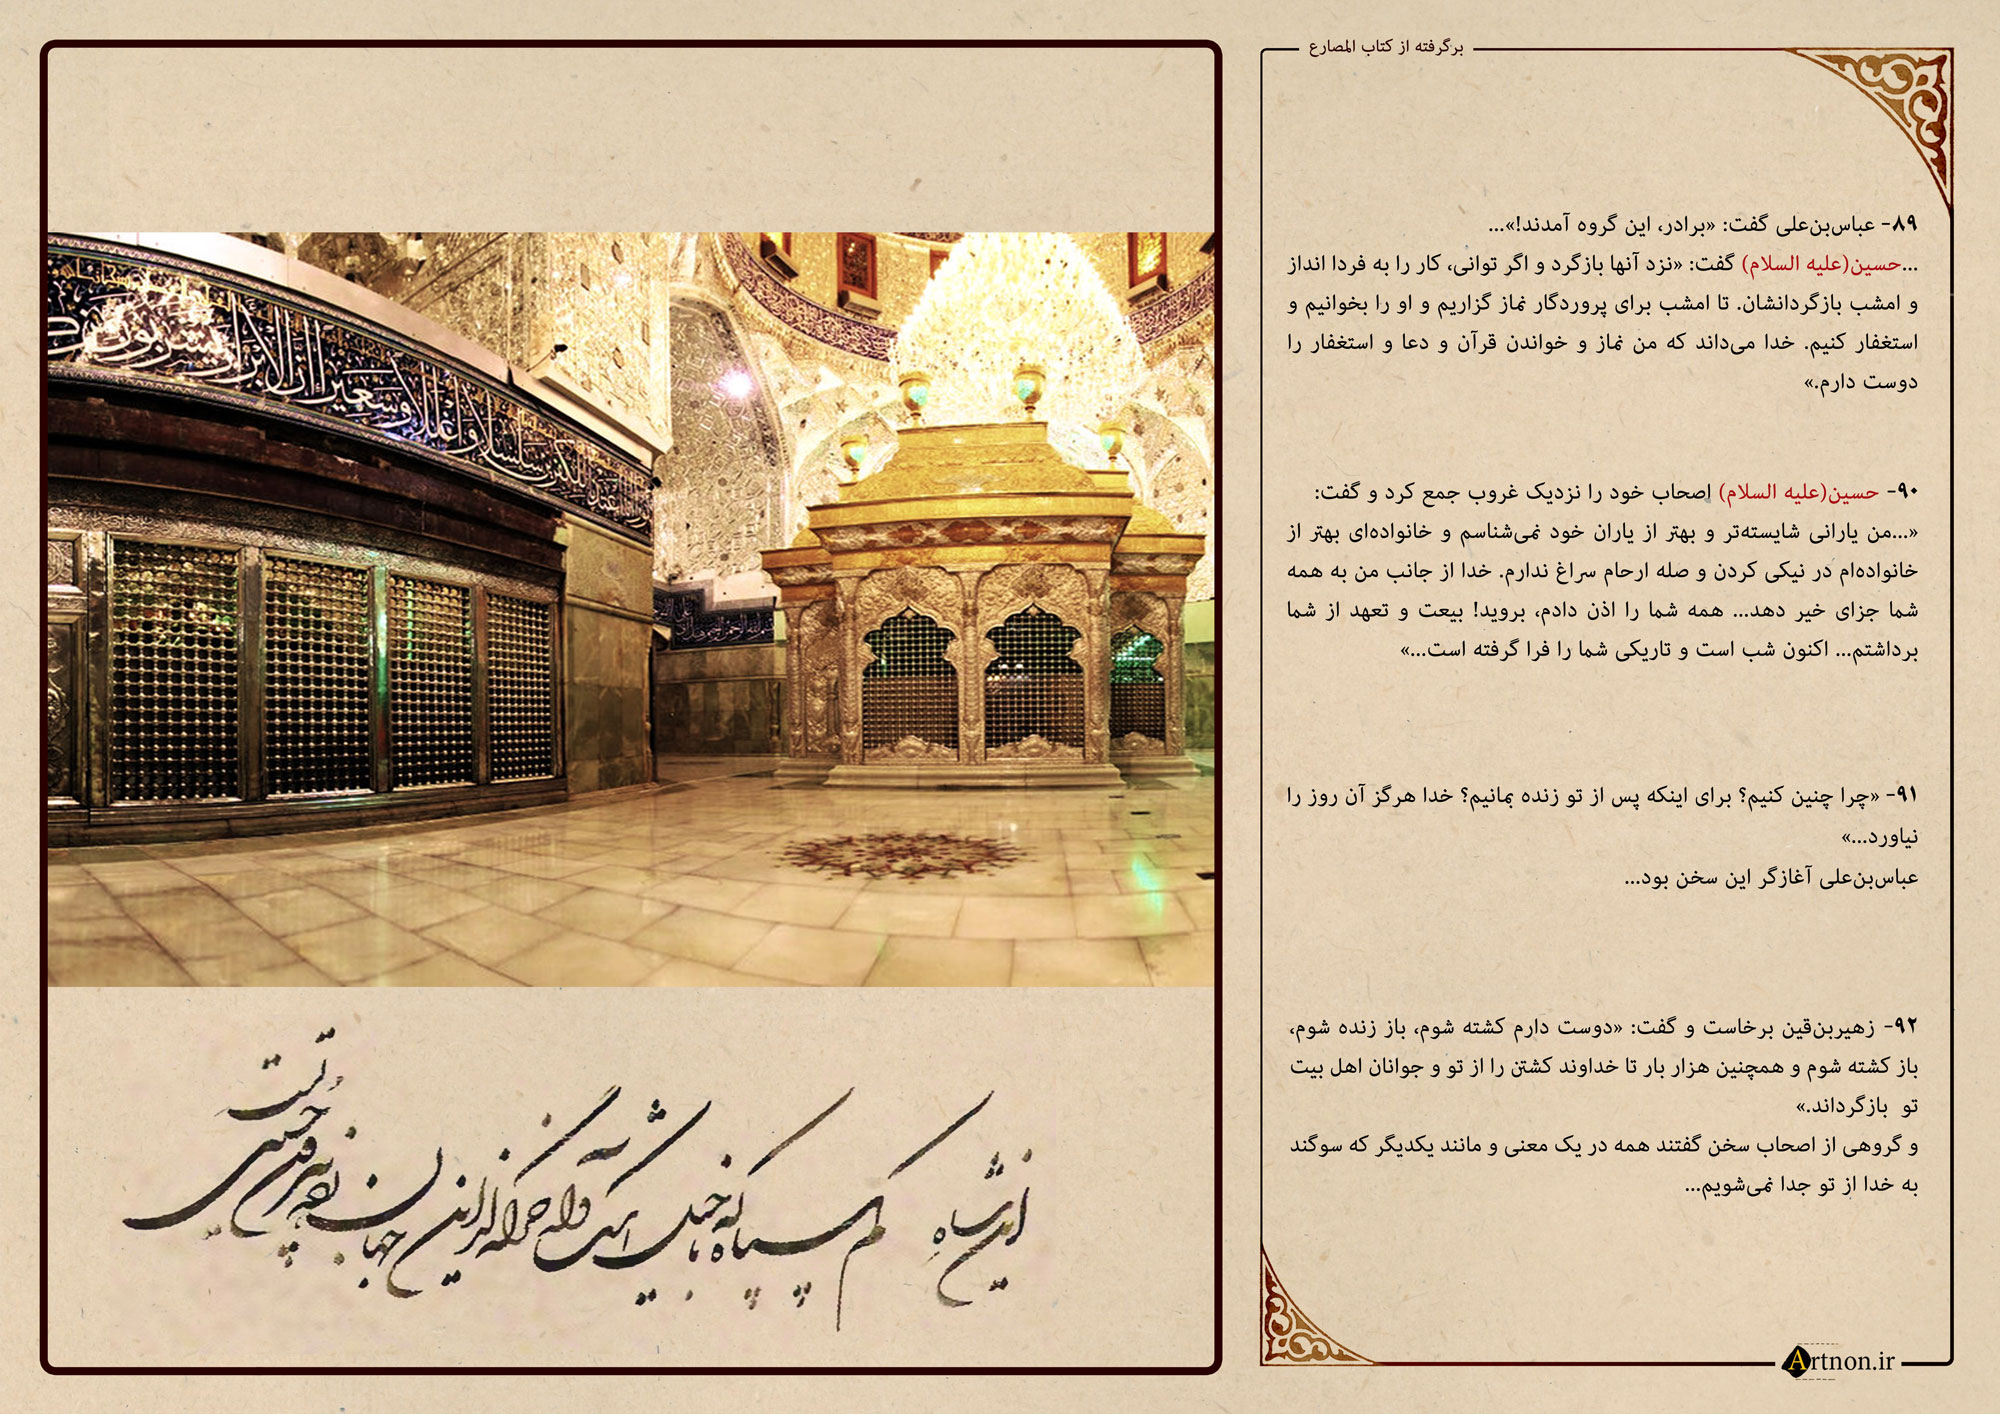 برگرفته از کتاب المصارع
۸۹- عباس‌بن‌علی گفت: «برادر، این گروه آمدند!»...
...حسین(علیه السلام) گفت: «نزد آنها بازگرد و اگر توانی، کار را به فردا انداز
و امشب بازگردانشان. تا امشب برای پروردگار نماز گزاریم و او را بخوانیم و
استغفار کنیم. خدا می‌داند که من نماز و خواندن قرآن و دعا و استغفار را
دوست دارم.»
۹۰- حسین(علیه السلام) اصحاب خود را نزدیک غروب جمع کرد و گفت:
«...من یارانی شایسته‌تر و بهتر از یاران خود نمی‌شناسم و خانواده‌ای بهتر از
خانواده‌ام در نیکی کردن و صله ارحام سراغ ندارم. خدا از جانب من به همه
شما جزای خیر دهد... همه شما را اذن دادم، بروید! بیعت و تعهد از شما
برداشتم... اکنون شب است و تاریکی شما را فرا گرفته است...»
۹۱- «چرا چنین کنیم؟ برای اینکه پس از تو زنده بمانیم؟ خدا هرگز آن روز را
نیاورد...»
عباس‌بن‌علی آغازگر این سخن بود...
۹۲- زهیربن‌قین برخاست و گفت: «دوست دارم کشته شوم، باز زنده شوم،
باز کشته شوم و همچنین هزار بار تا خداوند کشتن را از تو و جوانان اهل بیت
تو بازگرداند.»
و گروهی از اصحاب سخن گفتند همه در یک معنی و مانند یکدیگر که سوگند
به خدا از تو جدا نمی‌شویم...
Artnon.ir
این شاه کم سپاه که با خیل اشک و آه خرگاه از این جهان زده بیرون حسین توست